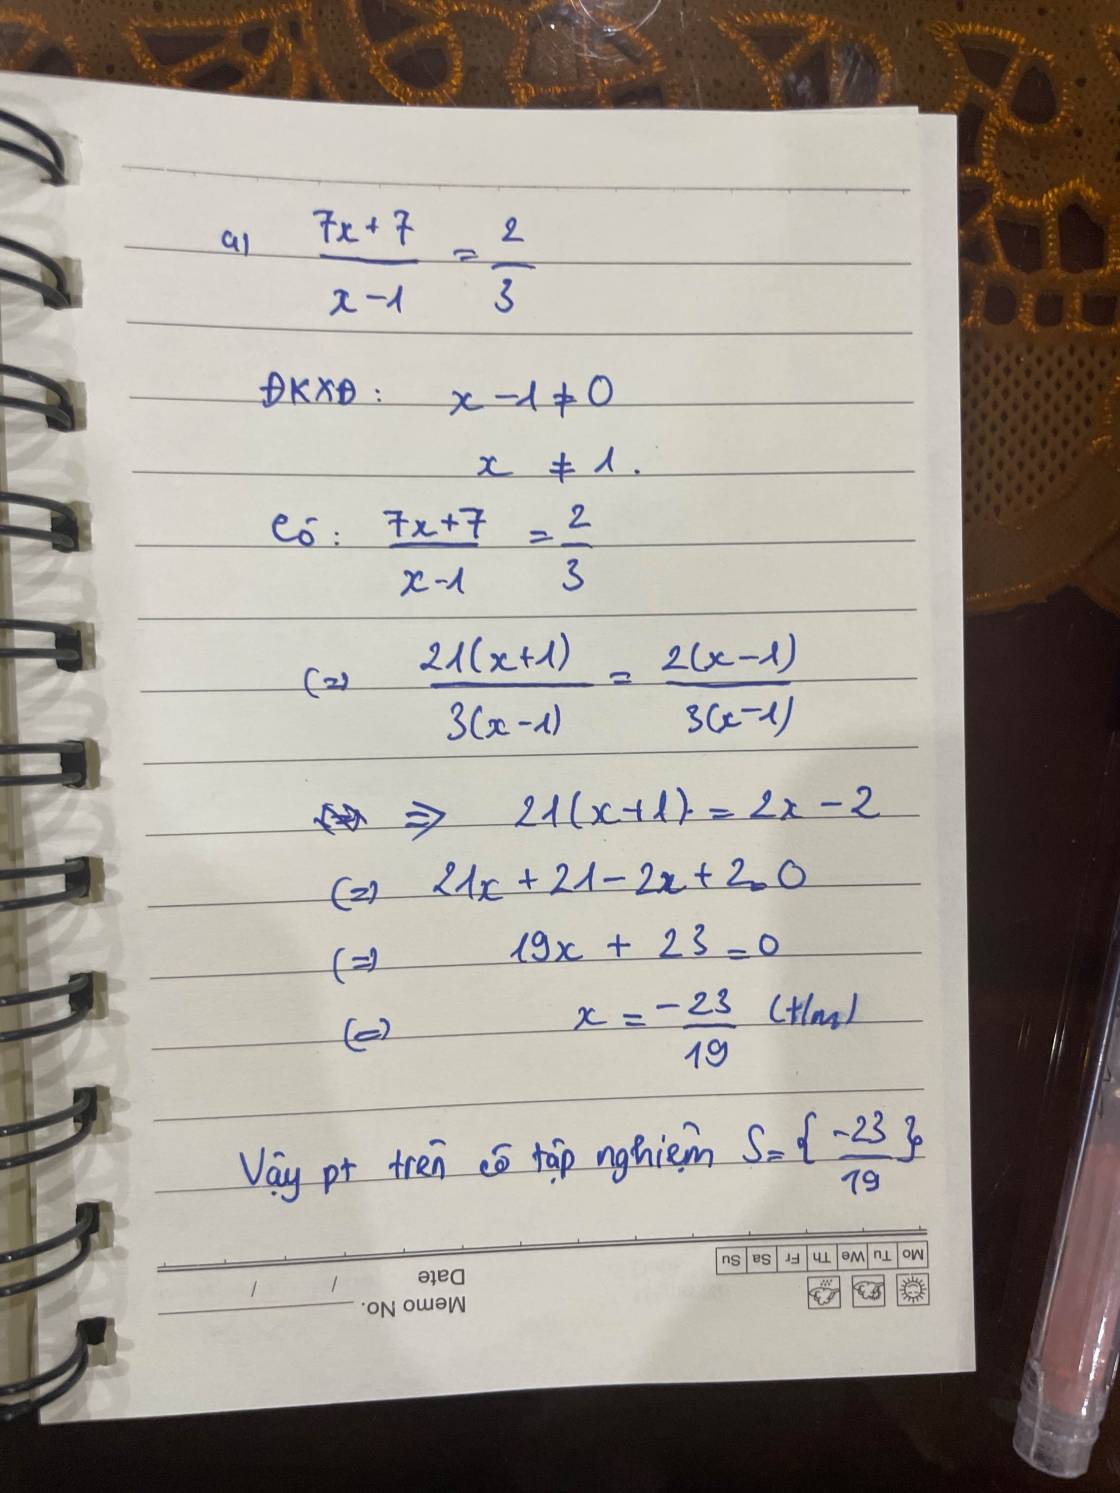 a) (7x+7)/(x-1) = 2/3
ĐKXĐ: x-1 ≠ 0
x ≠ 1.
Có: (7x+7)/(x-1) = 2/3
(=) 21(x+1)/3(x-1) = 2(x-1)/3(x-1)
=> 21(x+1) = 2x-2
(=) 21x + 21 - 2x + 2 = 0
(=) 19x + 23 = 0
(=) x = -23/19 (t/m)
Vậy pt trên có tập nghiệm S = {-23/19}
Mo Tu We Th Fr Sa Su
Memo No.
Date / /